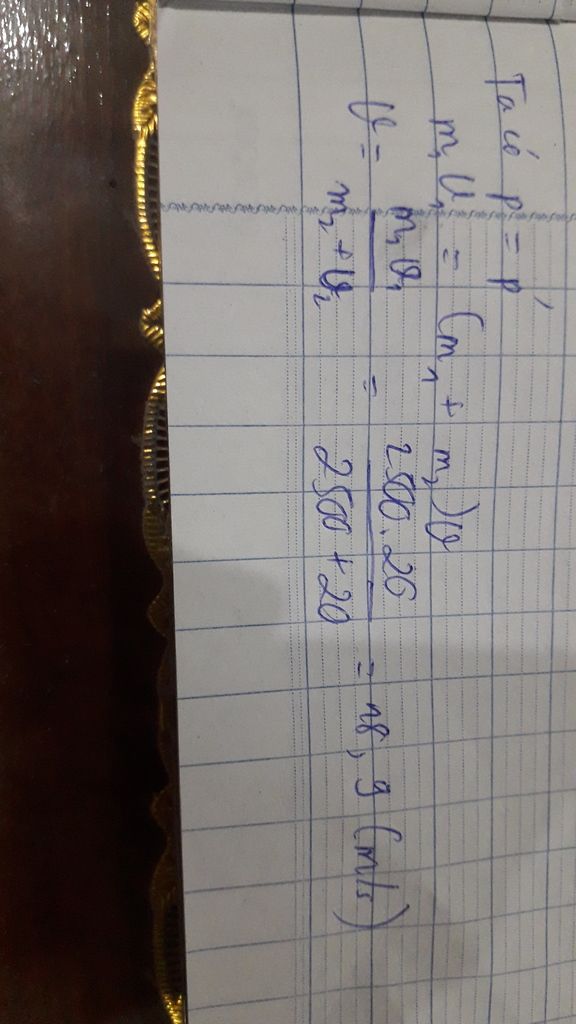 Ta có p = p'
m₁ v₁ = (m₁ + m₂)v
v = m₁v₁ / m₂ + v₂ = 2500.20 / 2500 + 20 = 18,9 (m/s)